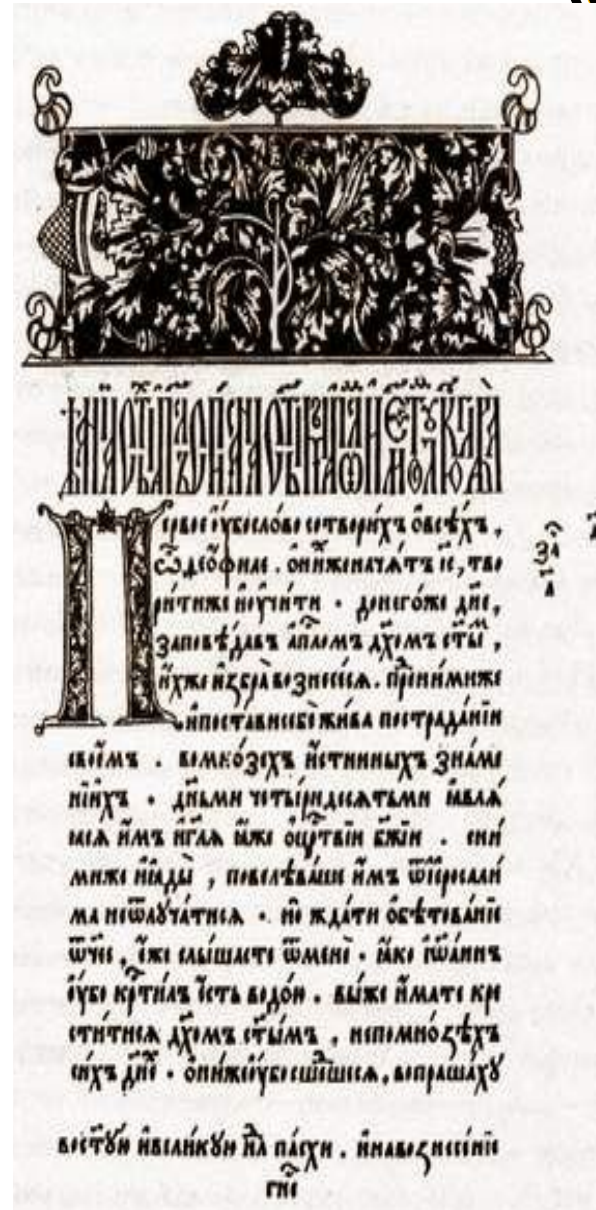 Первое ѹ҆бо слово сотвори́хъ ѻ҆ всѣ́хъ,
ѽ део́филе. о҆ ниже начѧ́тъ і҆с҃, тво
ри́ти же и҆ ѹ҆чи́ти. до него́ же дн҃е,
заповѣ́давъ а҆пⷭ҇ломъ дх҃омъ ст҃ы́мъ,
и҆́хже и҆збра̀ вознесе́сѧ. пред ни́миже
и҆ постави себѐ жи́ва по страда́нїи
свое́мъ. во мно́зехъ и҆́стинныхъ зна́ме
нїихъ. дн҃ьми четы́ридесѧтьми ꙗ҆влѧ́
ѧсѧ и҆̀мъ и҆ гл҃ѧ ꙗ҆́же о҆ црⷭ҇твїи бж҃їи. с ни́
миже и҆ ꙗ҆ды̀, повелѣва́ше и҆̀мъ ѿ і҆ерⷭ҇али́
ма не ѿлуча́тисѧ. но̀ жда́ти ѻ҆бѣтова́нїе
ѿч҃ее, е҆́же слы́шасте ѿ менѐ. ꙗ҆́ко і҆ѡа́ннъ
ѹ҆́бо крⷭ҇ти́лъ є҆́сть водо́ю. вы́же и҆́мате кре
сти́тисѧ дх҃омъ ст҃ы́мъ, не по мно́ѕѣхъ
си́хъ дн҃е. ѻ҆ни́же ѹ҆́бо сше́дшесѧ, вопраша́хꙋ
во ст҃ꙋ́ю и҆ вели́кꙋю нⷣлю па́схи. и҆ на вознесе́нїе
гн҃е